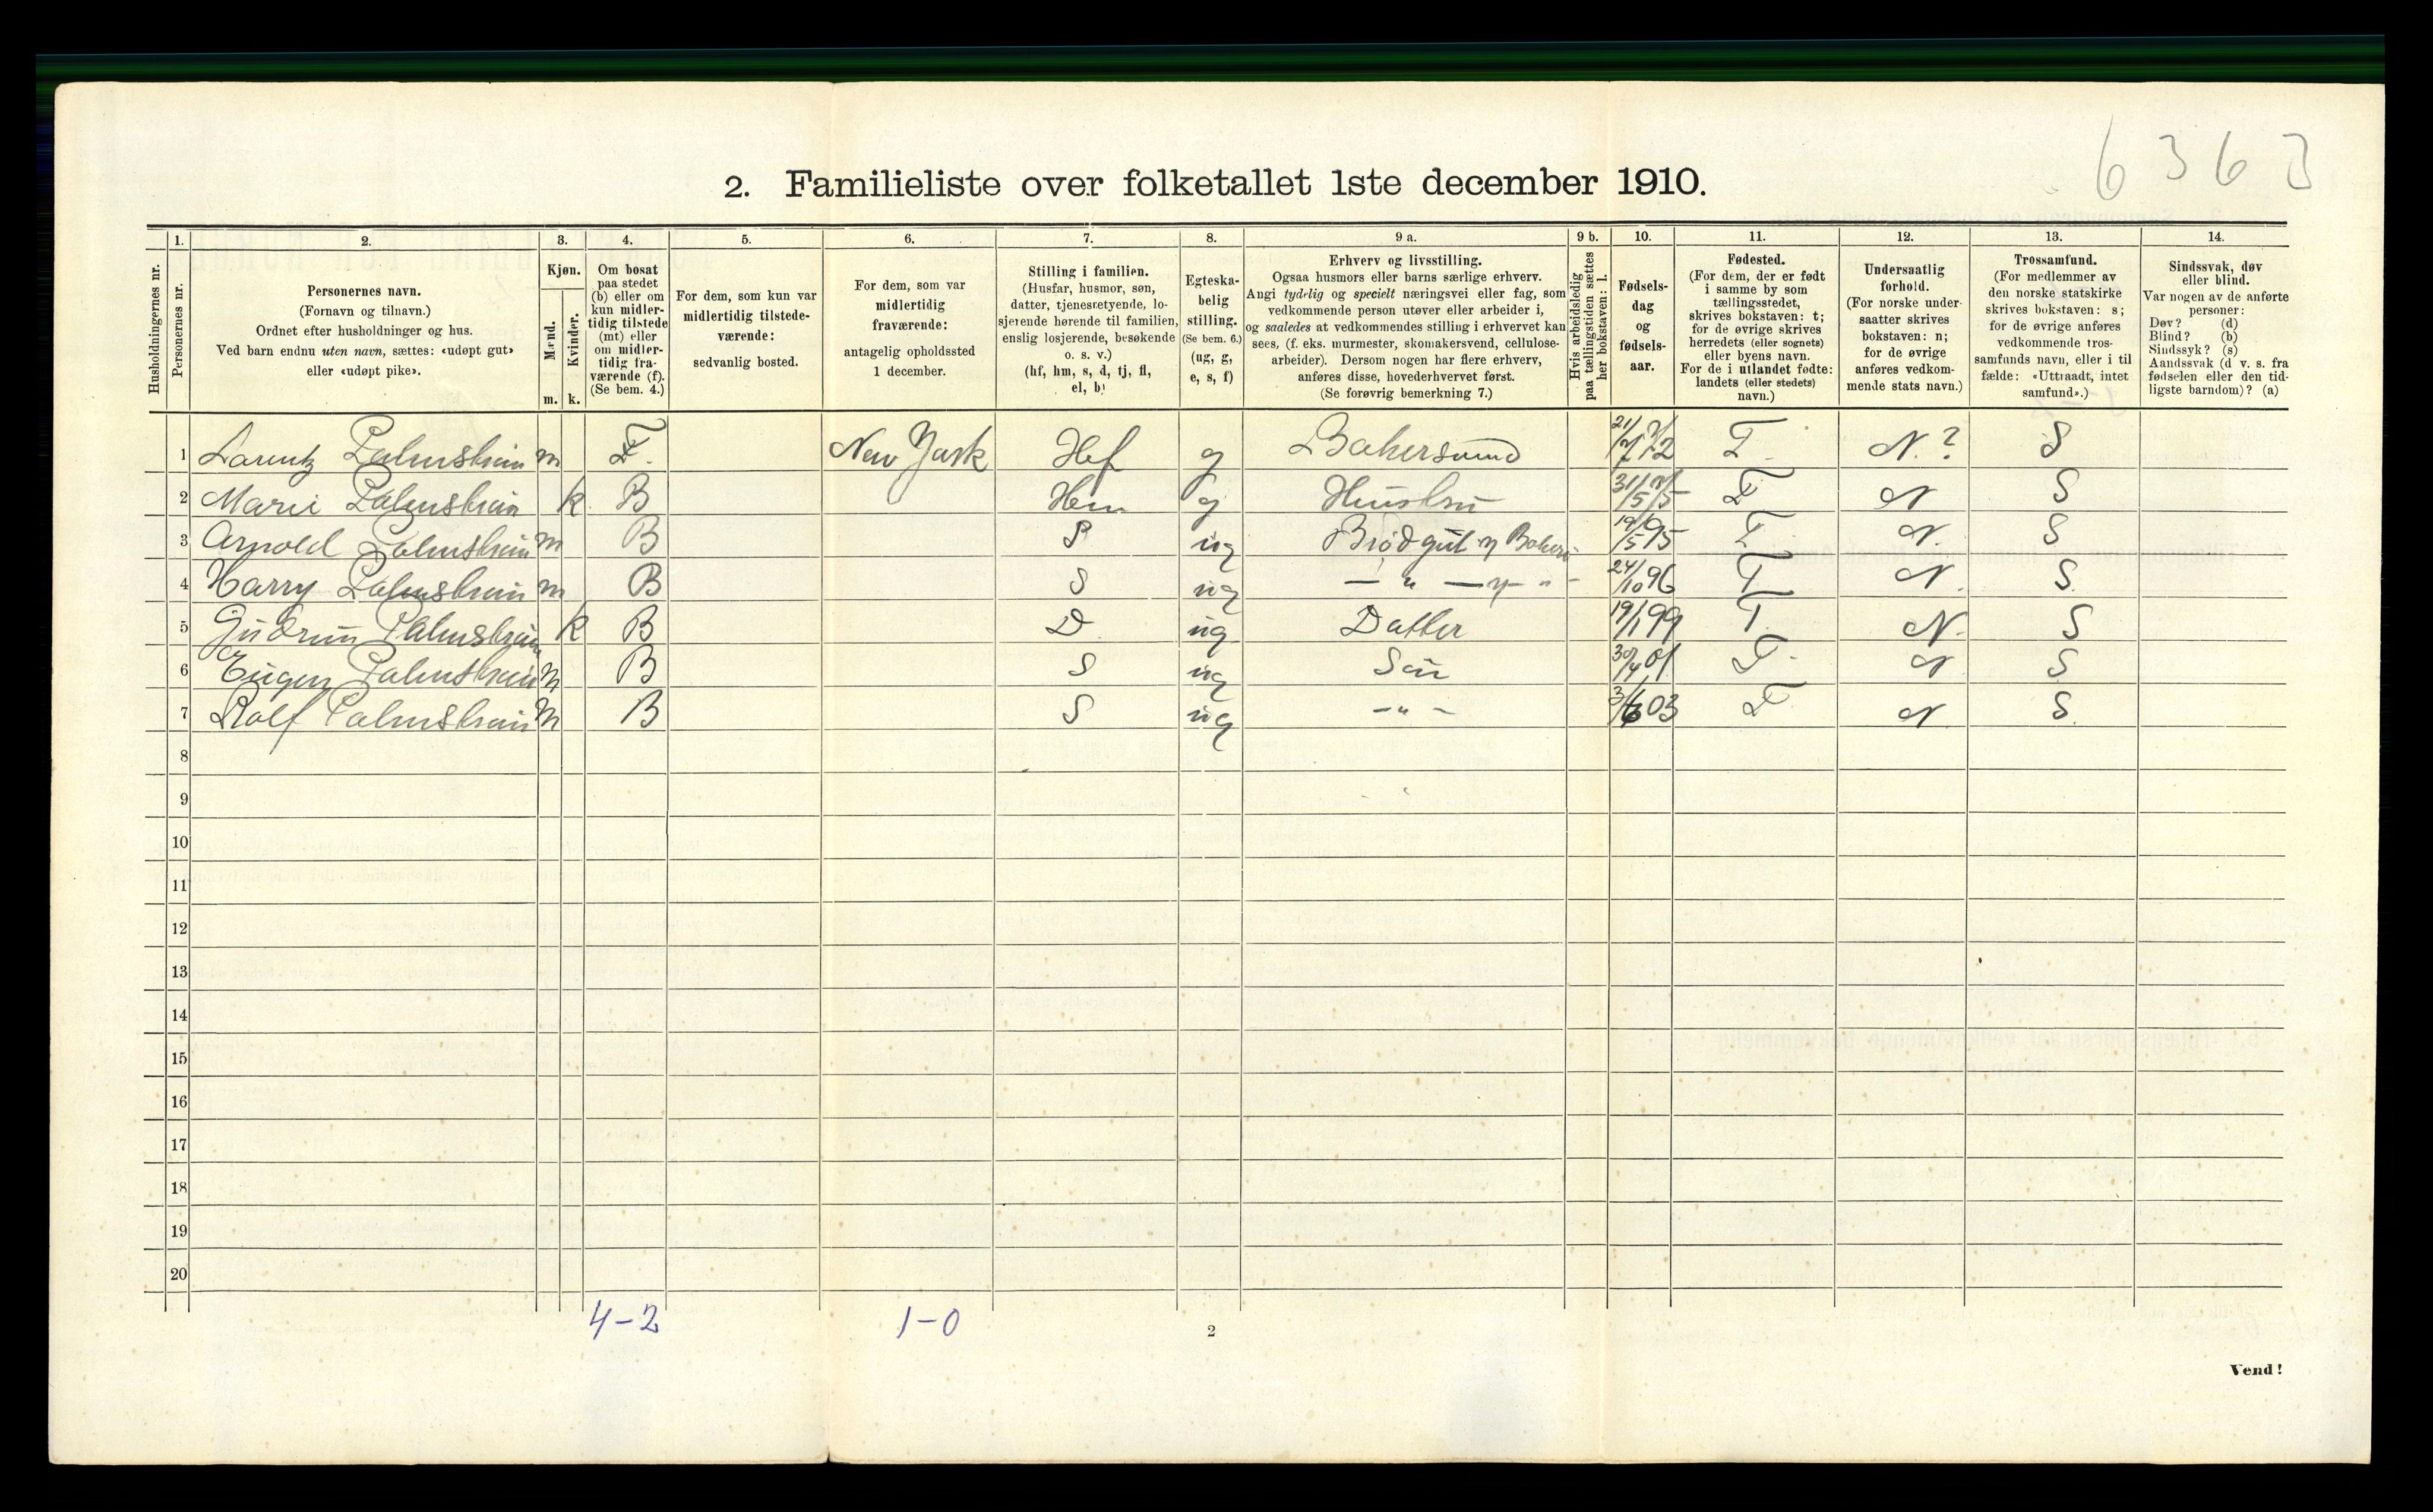 6363
2. Familieliste over folketallet 1ste december 1910.
Husholdningernes nr.
1. Personernes nr.
2. Personernes navn. (Fornavn og tilnavn.) Ordnet efter husholdninger og hus. Ved barn endnu uten navn, sættes: «udøpt gut» eller «udøpt pike».
3. Kjøn. Mænd. m. Kvinder. k.
4. Om bosat paa stedet (b) eller om kun midlertidig tilstede (mt) eller om midlertidig fraværende (f). (Se bem. 4.)
5. For dem, som kun var midlertidig tilstedeværende: sedvanlig bosted.
6. For dem, som var midlertidig fraværende: antagelig opholdssted 1 december.
7. Stilling i familien. (Husfar, husmor, søn, datter, tjenestetyende, losjerende hørende til familien, enslig losjerende, besøkende o. s. v.) (hf, hm, s, d, tj, fl, el, b)
8. Egteskabelig stilling. (Se bem. 6.) (ug, g, e, s, f)
9 a. Erhverv og livsstilling. Ogsaa husmors eller barns særlige erhverv. Angi tydelig og specielt næringsvei eller fag, som vedkommende person utøver eller arbeider i, og saaledes at vedkommendes stilling i erhvervet kan sees, (f. eks. murmester, skomakersvend, cellulosearbeider). Dersom nogen har flere erhverv, anføres disse, hovederhvervet først. (Se forøvrig bemerkning 7.)
9 b. Hvis arbeidsledig paa tællingstiden sættes her bokstaven: l.
10. Fødselsdag og fødselsaar.
11. Fødested. (For dem, der er født i samme by som tællingsstedet, skrives bokstaven: t; for de øvrige skrives herredets (eller sognets) eller byens navn. For de i utlandet fødte: landets (eller stedets) navn.)
12. Undersaatlig forhold. (For norske undersaatter skrives bokstaven: n; for de øvrige anføres vedkommende stats navn.)
13. Trossamfund. (For medlemmer av den norske statskirke skrives bokstaven: s; for de øvrige anføres vedkommende trossamfunds navn, eller i tilfælde: «Uttraadt, intet samfund».)
14. Sindssvak, døv eller blind. Var nogen av de anførte personer: Døv? (d) Blind? (b) Sindssyk? (s) Aandssvak (d v. s. fra fødselen eller den tidligste barndom)? (a)
1 Larentz Palmstrøm m F. New York Hf g Bakersvend T. N.? S
2 Marie Palmstrøm k B Hm g Hustru T N S
3 Arnold Palmstrøm m B S ug Brødgut T. N. S
4 Harry Palmstrøm m B S ug — " — 24/10 96 T N. S.
5 Gudrun Palmstrøm k B D ug Datter 19/1 99 T. N. S
6 Eugen Palmstrøm m B S ug Søn 30/4 01. T. N S
7 Rolf Palmstrøm m B S ug — " — 3/6 03 T N S.
8
9
10
11
12
13
14
15
16
17
18
19
20
4-2 1-0
2
Vend!